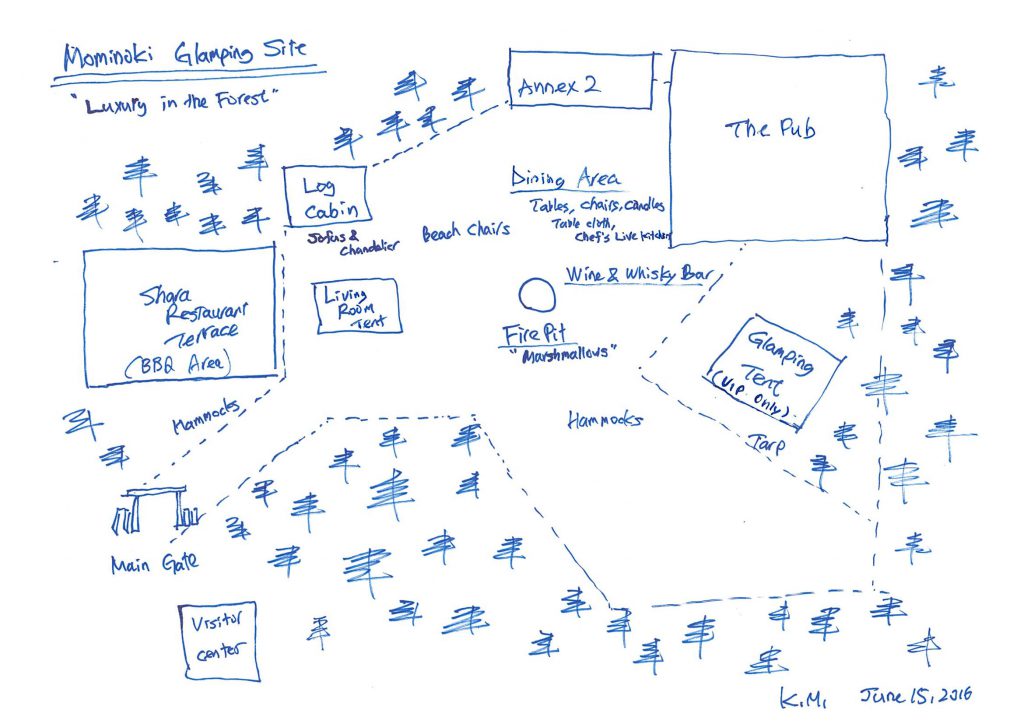 Mominoki Glamping Site
"Luxury in the Forest"
Annex 2
The Pub
Log
Cabin
Sofas &
Chandelier
Beach Chairs
Dining Area
Tables, chairs, candles
Table cloth,
Chef's Live Kitchen
Shara
Restaurant
Terrace
(BBQ Area)
Living
Room
Tent
Wine & Whisky Bar
Fire Pit
"Marshmallows"
Glamping
Tent
(VIP Only)
Hammocks
Hammocks
Tarp
Main Gate
Visitor
Center
K.M. June 15, 2016